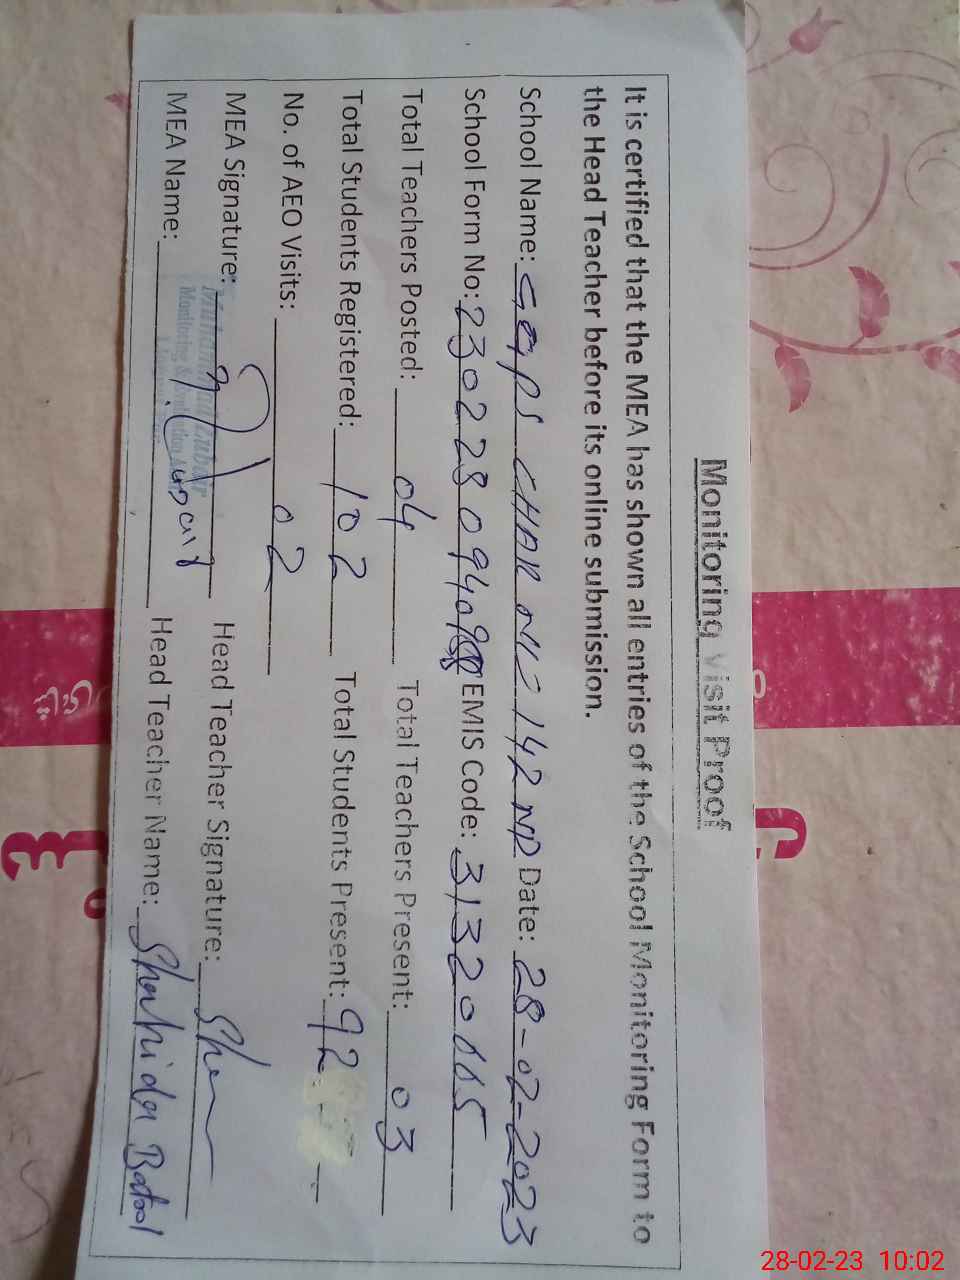 Monitoring Visit Proof
It is certified that the MEA has shown all entries of the School Monitoring Form to
the Head Teacher before its online submission.
School Name: GGPS CHAK NO 142 NP Date: 28-02-2023
School Form No: 230228094098 EMIS Code: 31320665
Total Teachers Posted: 04 Total Teachers Present: 03
Total Students Registered: 102 Total Students Present: 92
No. of AEO Visits: 02
MEA Signature: Head Teacher Signature:
MEA Name: Head Teacher Name: Shahida Batool
Monitoring &
28-02-23 10:02